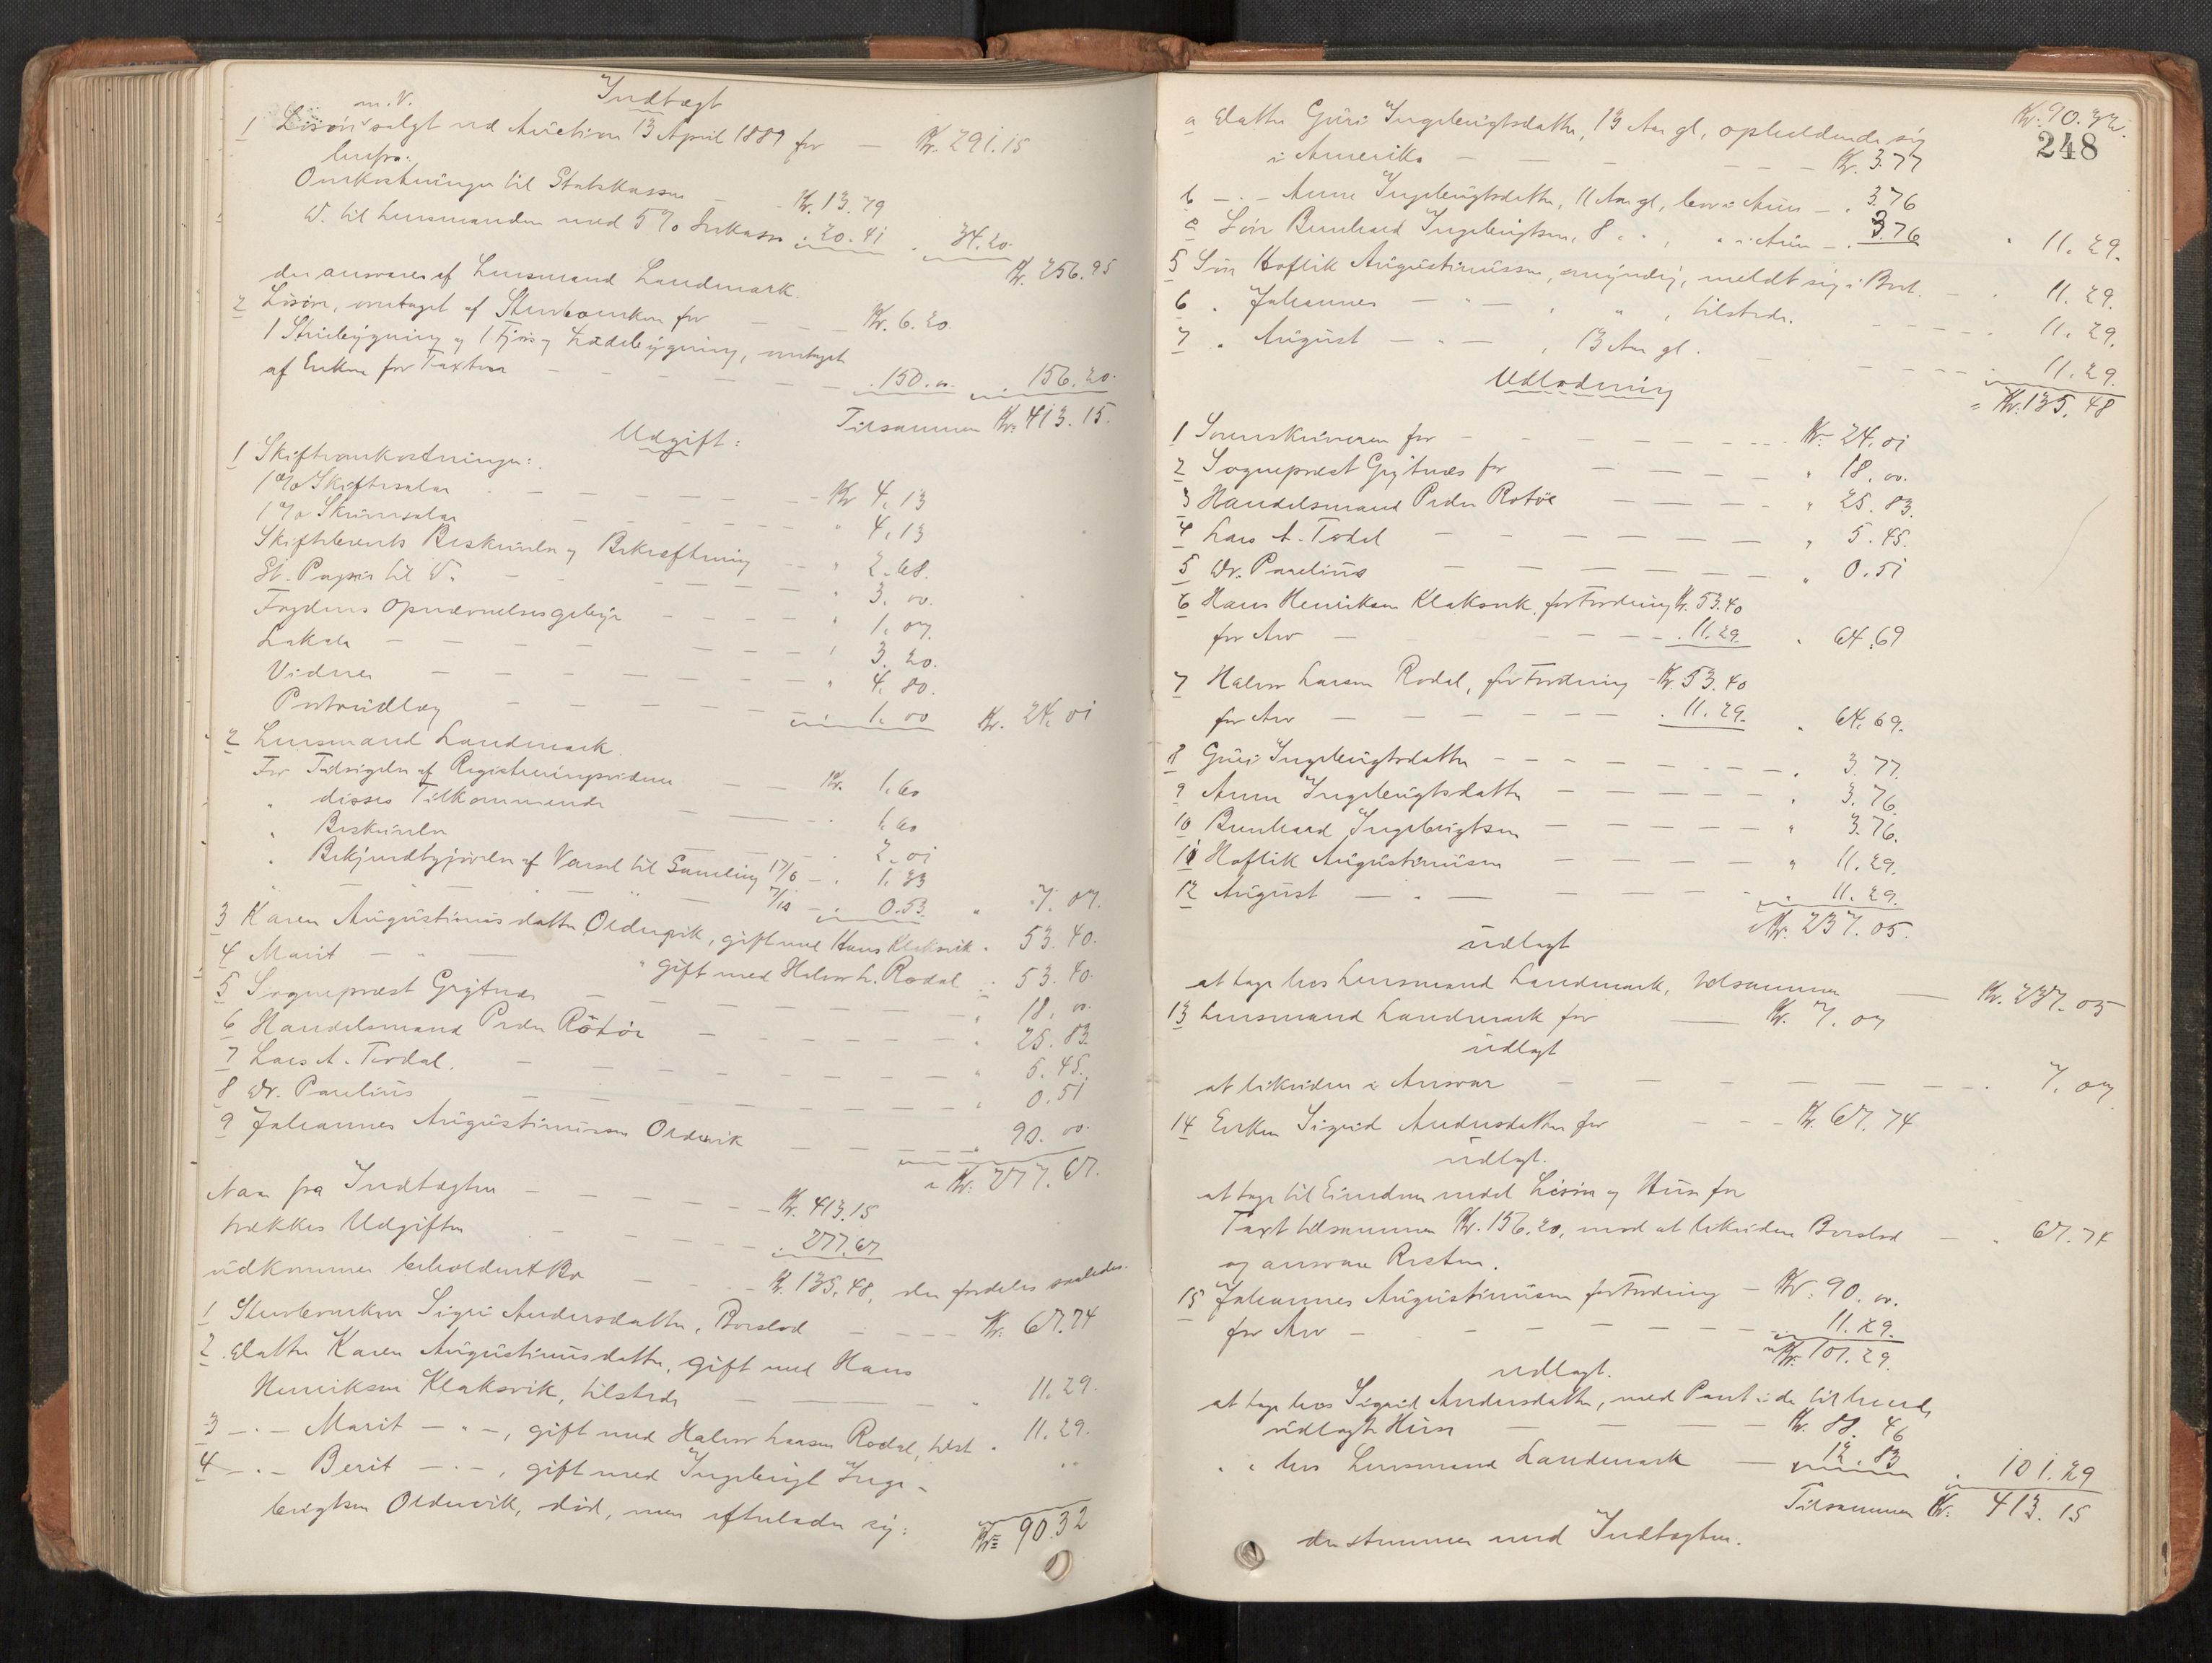 Indtægt
m.V.
1 Løsøre solgt ved Auction 13 April 1889 for — Kr. 291.15
herfra:
Omkostninger til Statskassen — Kr. 13.79
D. til Lensmanden med 5 % Inkasso " 20.41 " 34.20.
Kr. 256.95
der ansvares af Lensmand Landmark.
2 Løsøre, vurderet af Stervboenken for — — Kr. 6.20.
1 Stuebygning og 1 Fjøs og Ladebygning, 
af Enken for Taxten — — — 150.00 " 156.20.
Tilsammen Kr. 413.15.
Udgift:
1 Skifteomkostninger:
1 % Skiftesalær — — — Kr 4,13
1 % Skriversalær — — — " 4,13
Skiftebrevets Beskrivelse og Bekræftning — " 2.68.
St. Papir til D. — — — " 3.00.
Fogdens Opnævnelsesgebyr — — " 1.07.
Lokale — — — " 3.20.
Vidner — — — " 4.80.
Portoudlæg — — — " 1.00 Kr. 24.01
2 Lensmand Landmark.
For Tilsigelse af Registreringsvidnerne — — Kr. 1.60
" disses Tilkommende — — " 1.60
" Beskrivelse — — " 2.01
" Bekjendtgjørelse af Varsel til Samling 17/6 — " 1.33
" — " — " — 7/10 — " 0.53. " 7.07.
3 Karen Augustinusdatter Oldervik, gift med Hans Klaksvik " 53.40.
4 Marit — " — " gift med Halvor L. Rodal " 53.40.
5 Sogneprest Grytnes — — — " 18.00.
6 Handelsmand Peder Rotøe — — — " 25.83.
7 Lars A. Todal. — — — " 5.45.
8 Dr. Parelius — — — " 0.51
9 Johannes Augustinussen Oldervik — — " 90.00.
= Kr. 277.67.
Naar fra Indtægten — — — Kr. 413.15
trækkes Udgiften — — — " 277.67
udkommer beholdent Bo — — Kr. 135.48, der fordeles saaledes.
1 Stervboenken Sigri Andersdatter, Boeslod — — — Kr. 67.74
2 Datter Karen Augustinusdatter, gift med Hans
Henriksen Klaksvik, tilstede — — " 11.29.
3 — " — Marit — " —, gift med Halvor Larsen Rodal, tilst. " 11.29.
4 — " — Berit — " —, gift med Ingebrigt Inge-
brigtsen Oldervik, død, men efterlader sig: "
Kr. 90.32
Kr. 90.32.
248
a Datter Guri Ingebrigtsdatter, 13 Aar gl, opholdende sig
i Amerika — — — Kr. 3.77
b — " — Anne Ingebrigtsdatter, 11 Aar gl, — " 3.76
c Søn Bernhard Ingebrigtsen, 8 " ", " — " 3.76 " 11.29.
5 Søn Hoflik Augustinussen, myndig, meldt sig i Boet. — " 11.29.
6 " Johannes — " —, ", tilstede. — — — " 11.29.
7 " August — " —, 13 Aar gl. — — — " 11.29.
= Kr. 135.48
Udlodning
1 Sorenskriveren for — — — Kr. 24.01
2 Sogneprest Grytnes for — — — " 18.00.
3 Handelsmand Peder Rotøe — — — " 25.83.
4 Lars A. Todal — — — " 5.45.
5 Dr. Parelius — — — " 0.51
6 Hans Henriksen Klaksvik, for Fordring Kr. 53.40
for Arv — — — " 11.29. " 64.69
7 Halvor Larsen Rodal, for Fordring — Kr. 53.40
for Arv — — — " 11.29. " 64.69.
8 Guri Ingebrigtsdatter — — — " 3.77.
9 Anne Ingebrigtsdatter — — — " 3.76.
10 Bernhard Ingebrigtsen — — — " 3.76.
11 Hoflik Augustinussen — — — " 11.29.
12 August — " — — — " 11.29.
= Kr. 237.05.
udlagt
at tage hos Lensmand Landmark, tilsammen — Kr. 237.05
13 Lensmand Landmark for — Kr. 7.07
udlagt
at likvidere i Ansvar — — — " 7.07
14 Enken Sigrid Andersdatter for — — Kr. 67.74
udlagt.
at tage til Eiendom  Løsøre og Huse for
Taxt tilsammen Kr. 156.20, mod at likvidere Boeslod — " 67.74
og ansvare Resten.
15 Johannes Augustinussen for Fordring — Kr. 90.00.
for Arv — — — " 11.29.
= Kr. 101.29.
udlagt.
at tage hos Sigrid Andersdatter, med Pant i de til hende
udlagte Huse — — Kr. 88.46
" " hos Lensmand Landmark — " 12.83 " 101.29
Tilsammen Kr. 413.15
der stemmer med Indtægten.